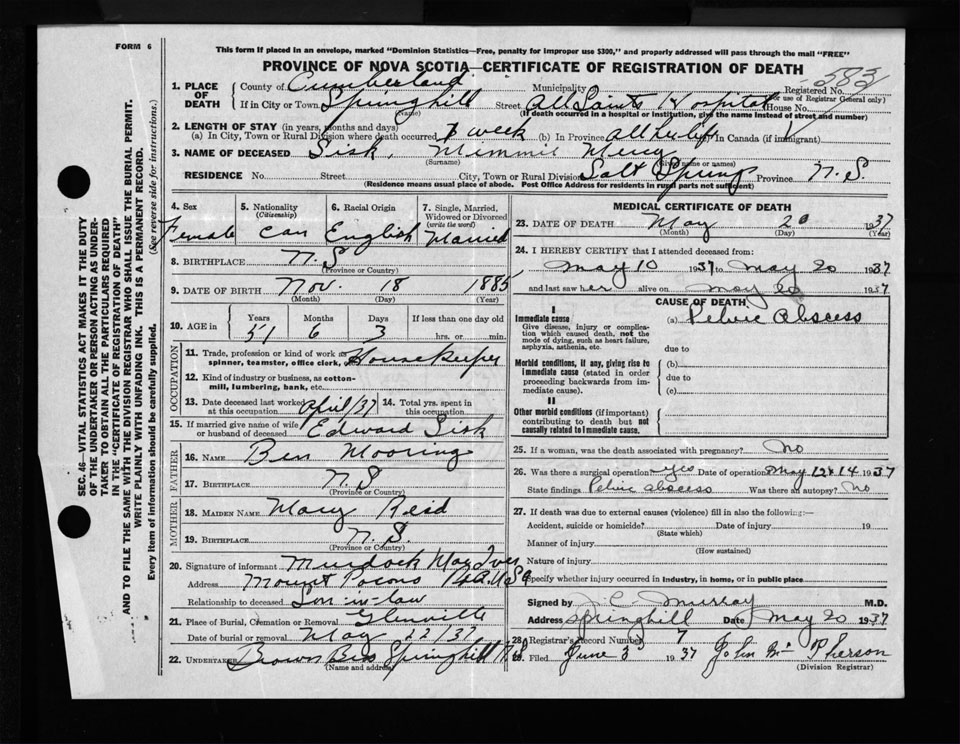 FORM 6
This form if placed in an envelope, marked "Dominion Statistics—Free, penalty for improper use $300," and properly addressed will pass through the mail "FREE"
PROVINCE OF NOVA SCOTIA—CERTIFICATE OF REGISTRATION OF DEATH
SEC. 46—VITAL STATISTICS ACT MAKES IT THE DUTY
OF THE UNDERTAKER OR PERSON ACTING AS UNDER-
TAKER TO OBTAIN ALL THE PARTICULARS REQUIRED
IN THE "CERTIFICATE OF REGISTRATION OF DEATH"
AND TO FILE THE SAME WITH THE DIVISION REGISTRAR WHO SHALL ISSUE THE BURIAL PERMIT.
WRITE PLAINLY WITH UNFADING INK. THIS IS A PERMANENT RECORD.
Every item of information should be carefully supplied. (See reverse side for instructions.)
1. PLACE OF DEATH
County of Cumberland Municipality Registered No. 583
(For use of Registrar General only)
If in City or Town Springhill Street All Saints Hospital House No.
(Name) (If death occurred in a hospital or institution, give the name instead of street and number)
2. LENGTH OF STAY (in years, months and days)
(a) In City, Town or Rural Division where death occurred 1 week (b) In Province all her life In Canada (if immigrant)
3. NAME OF DECEASED Sisk, Minnie Mercy
(Surname) (Given name or names)
RESIDENCE No. Street City, Town or Rural Division Salt Springs Province N.S.
(Residence means usual place of abode. Post Office Address for residents in rural parts not sufficient)
4. Sex 5. Nationality (Citizenship) 6. Racial Origin 7. Single, Married, Widowed or Divorced (write the word)
Female Can English Married
8. BIRTHPLACE N.S
(Province or Country)
9. DATE OF BIRTH Nov. 18 1885
(Month) (Day) (Year)
10. AGE in Years Months Days If less than one day old
51 6 3 hrs. or min.
OCCUPATION
11. Trade, profession or kind of work as spinner, teamster, office clerk, Housekeeper
12. Kind of industry or business, as cotton-mill, lumbering, bank, etc.
13. Date deceased last worked at this occupation April/37 14. Total yrs. spent in this occupation
15. If married give name of wife or husband of deceased Edward Sisk
FATHER
16. NAME Ben Mooring
17. BIRTHPLACE N.S
(Province or Country)
MOTHER
18. MAIDEN NAME Mary Reid
19. BIRTHPLACE N.S.
(Province or Country)
20. Signature of informant Murdock
Address Mount Pocono
Relationship to deceased Son-in-law
21. Place of Burial, Cremation or Removal Glenville
Date of burial or removal May 22/37
22. UNDERTAKER Brown Bros Springhill N.S.
(Name and address)
MEDICAL CERTIFICATE OF DEATH
23. DATE OF DEATH May 20 1937
(Month) (Day) (Year)
24. I HEREBY CERTIFY that I attended deceased from:
May 10 1937 to May 20 1937
and last saw her alive on May 20 1937
CAUSE OF DEATH
I
Immediate cause (a) Pelvic Abscess
Give disease, injury or complication which caused death, not the mode of dying, such as heart failure, asphyxia, asthenia, etc.
due to
Morbid conditions, if any, giving rise to immediate cause (stated in order proceeding backwards from immediate cause).
(b)
due to
(c)
II
Other morbid conditions (if important) contributing to death but not causally related to immediate cause.
25. If a woman, was the death associated with pregnancy? No
26. Was there a surgical operation? yes Date of operation May 12 & 14 1937
State findings Pelvic abscess Was there an autopsy? No
27. If death was due to external causes (violence) fill in also the following:—
Accident, suicide or homicide? Date of injury 19
(State which)
Manner of injury
(How sustained)
Nature of injury
Specify whether injury occurred in industry, in home, or in public place
Signed by J. C. Murray M.D.
Address Springhill Date May 20 1937
28. Registrar's Record Number 7
Filed June 3 1937 John McPherson
(Division Registrar)